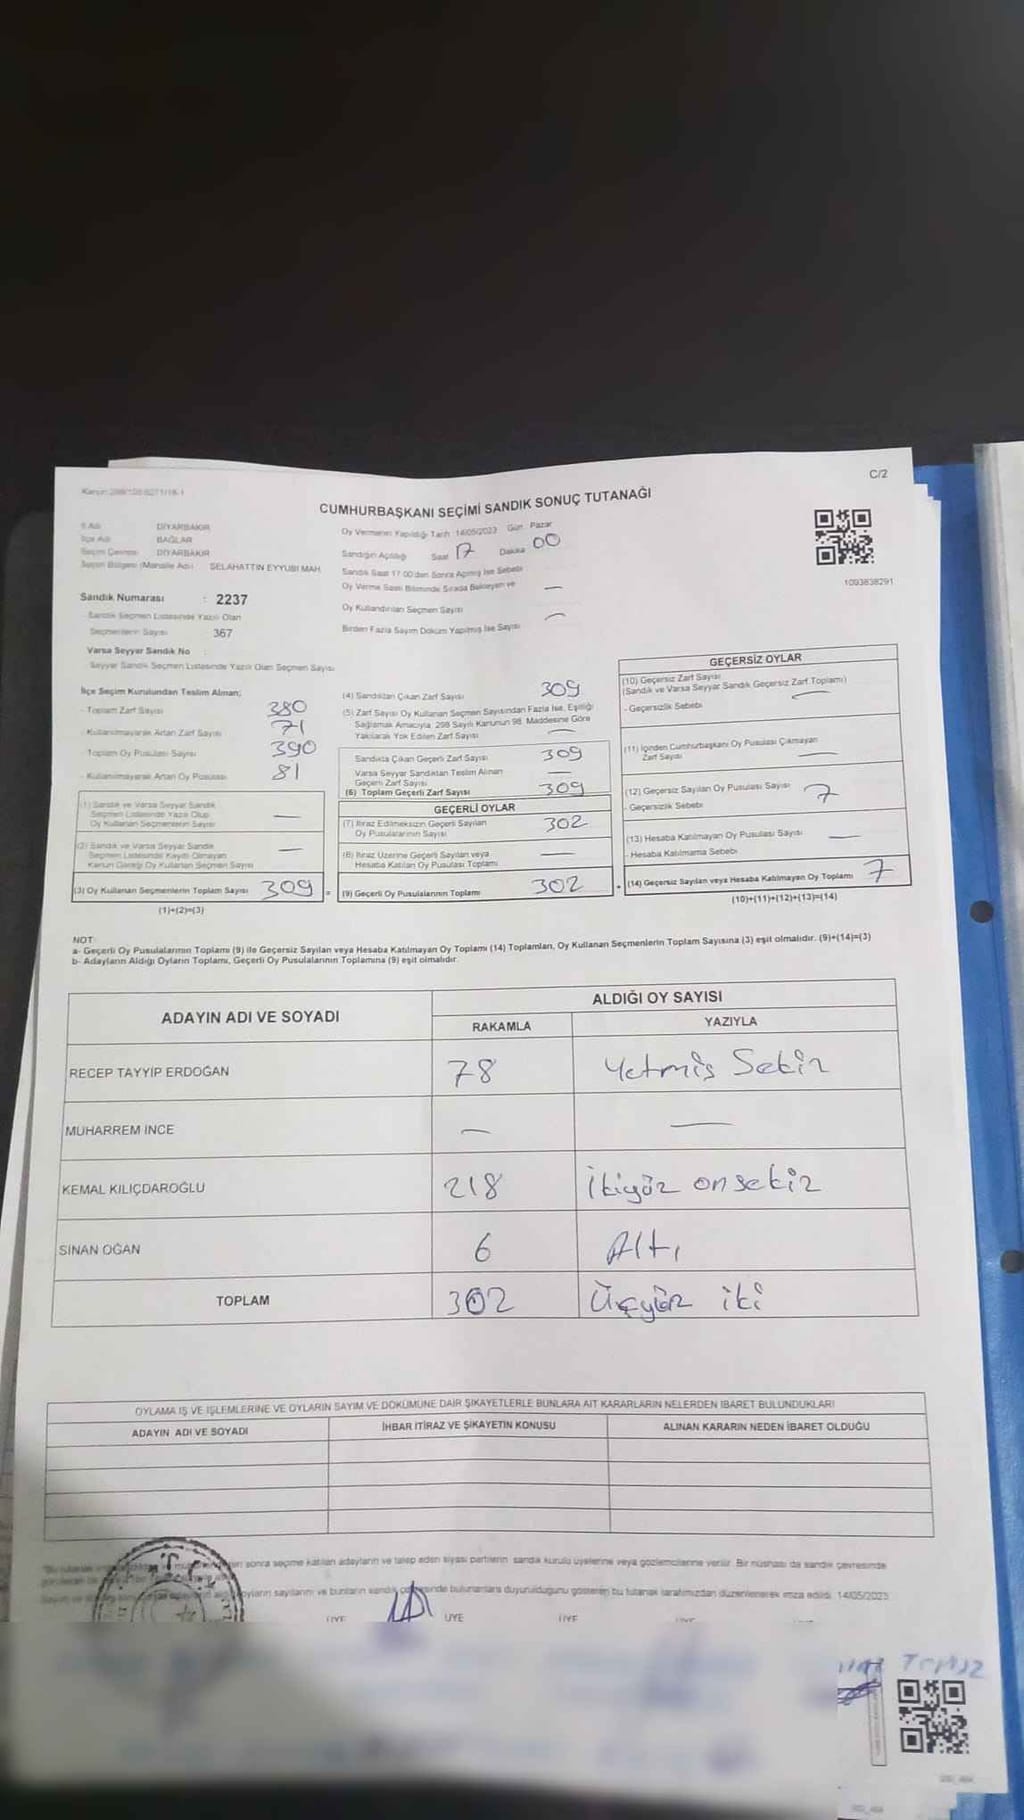 C/2
CUMHURBAŞKANI SEÇİMİ SANDIK SONUÇ TUTANAĞI
İl Adı DİYARBAKIR
İlçe Adı BAĞLAR
Seçim Çevresi DİYARBAKIR
Seçim Bölgesi (Mahalle Adı) SELAHATTİN EYYUBİ MAH.
Sandık Numarası : 2237
Sandık Seçmen Listesinde Yazılı Olan
Seçmenlerin Sayısı 367
Varsa Seyyar Sandık No
Seyyar Sandık Seçmen Listesinde Yazılı Olan Seçmen Sayısı
Oy Vermenin Yapıldığı Tarih 14/05/2023 Gün Pazar
Sandığın Açıldığı Saat 17 Dakika 00
Sandık Saat 17:00'den Sonra Açılmış İse Sebebi
Oy Verme Saati Bitiminde Sırada Bekleyen ve —
Oy Kullandırılan Seçmen Sayısı
Birden Fazla Sayım Döküm Yapılmış İse Sayısı —
1093838291
İlçe Seçim Kurulundan Teslim Alınan;
- Toplam Zarf Sayısı 380
- Kullanılmayarak Artan Zarf Sayısı 71
- Toplam Oy Pusulası Sayısı 390
- Kullanılmayarak Artan Oy Pusulası 81
(1) Sandık ve Varsa Seyyar Sandık
Seçmen Listesinde Yazılı Olup
Oy Kullanan Seçmenlerin Sayısı —
(2) Sandık ve Varsa Seyyar Sandık
Seçmen Listesinde Kaydı Olmayan
Kanun Gereği Oy Kullanan Seçmen Sayısı —
(3) Oy Kullanan Seçmenlerin Toplam Sayısı 309 =
(1)+(2)=(3)
(4) Sandıktan Çıkan Zarf Sayısı 309
(5) Zarf Sayısı Oy Kullanan Seçmen Sayısından Fazla İse, Eşitliği
Sağlamak Amacıyla, 298 Sayılı Kanunun 98. Maddesine Göre
Yakılarak Yok Edilen Zarf Sayısı —
Sandıkta Çıkan Geçerli Zarf Sayısı 309
Varsa Seyyar Sandıktan Teslim Alınan
Geçerli Zarf Sayısı —
(6) Toplam Geçerli Zarf Sayısı 309
GEÇERLİ OYLAR
(7) İtiraz Edilmeksizin Geçerli Sayılan
Oy Pusulalarının Sayısı 302
(8) İtiraz Üzerine Geçerli Sayılan veya
Hesaba Katılan Oy Pusulası Toplamı —
(9) Geçerli Oy Pusulalarının Toplamı 302 +
GEÇERSİZ OYLAR
(10) Geçersiz Zarf Sayısı
(Sandık ve Varsa Seyyar Sandık Geçersiz Zarf Toplamı) —
- Geçersizlik Sebebi
(11) İçinden Cumhurbaşkanı Oy Pusulası Çıkmayan
Zarf Sayısı —
(12) Geçersiz Sayılan Oy Pusulası Sayısı 7
- Geçersizlik Sebebi
(13) Hesaba Katılmayan Oy Pusulası Sayısı —
- Hesaba Katılmama Sebebi
(14) Geçersiz Sayılan veya Hesaba Katılmayan Oy Toplamı 7
(10)+(11)+(12)+(13)=(14)
NOT
a- Geçerli Oy Pusulalarının Toplamı (9) ile Geçersiz Sayılan veya Hesaba Katılmayan Oy Toplamı (14) Toplamları, Oy Kullanan Seçmenlerin Toplam Sayısına (3) eşit olmalıdır. (9)+(14)=(3)
b- Adayların Aldığı Oyların Toplamı, Geçerli Oy Pusulalarının Toplamına (9) eşit olmalıdır.
ADAYIN ADI VE SOYADI ALDIĞI OY SAYISI
RAKAMLA YAZIYLA
RECEP TAYYİP ERDOĞAN 78 Yetmiş Sekiz
MUHARREM İNCE — —
KEMAL KILIÇDAROĞLU 218 İkiyüz onsekiz
SİNAN OĞAN 6 Altı
TOPLAM 302 Üçyüz iki
OYLAMA İŞ VE İŞLEMLERİNE VE OYLARIN SAYIM VE DÖKÜMÜNE DAİR ŞİKAYETLERLE BUNLARA AİT KARARLARIN NELERDEN İBARET BULUNDUKLARI
ADAYIN ADI VE SOYADI İHBAR İTİRAZ VE ŞİKAYETİN KONUSU ALINAN KARARIN NEDEN İBARET OLDUĞU
sonra seçime katılan adayların ve talep eden siyasi partilerin sandık kurulu üyelerine veya gözlemcilerine verilir. Bir nüshası da sandık çevresinde
oyların sayılarını ve bunların sandık çevresinde bulunanlara duyurulduğunu gösteren bu tutanak tarafımızdan düzenlenerek imza edildi. 14/05/2023
T.C.
ÜYE ÜYE ÜYE